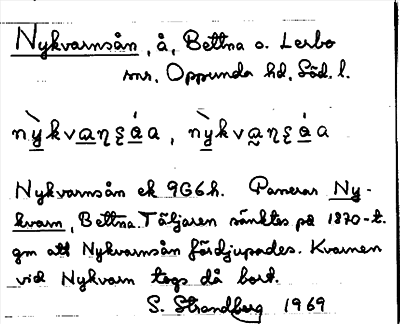 Nykvarnsån, å, Bettna o. Lerbo
snr, Oppunda hd, Söd. l.
Nykvarnsån ek 9G6h. Passerar Ny-
kvarn, Bettna. Täljaren sänktes på 1870-t.
gm att Nykvarnsån fördjupades. Kvarnen
vid Nykvarn togs då bort.
S. Strandberg 1969